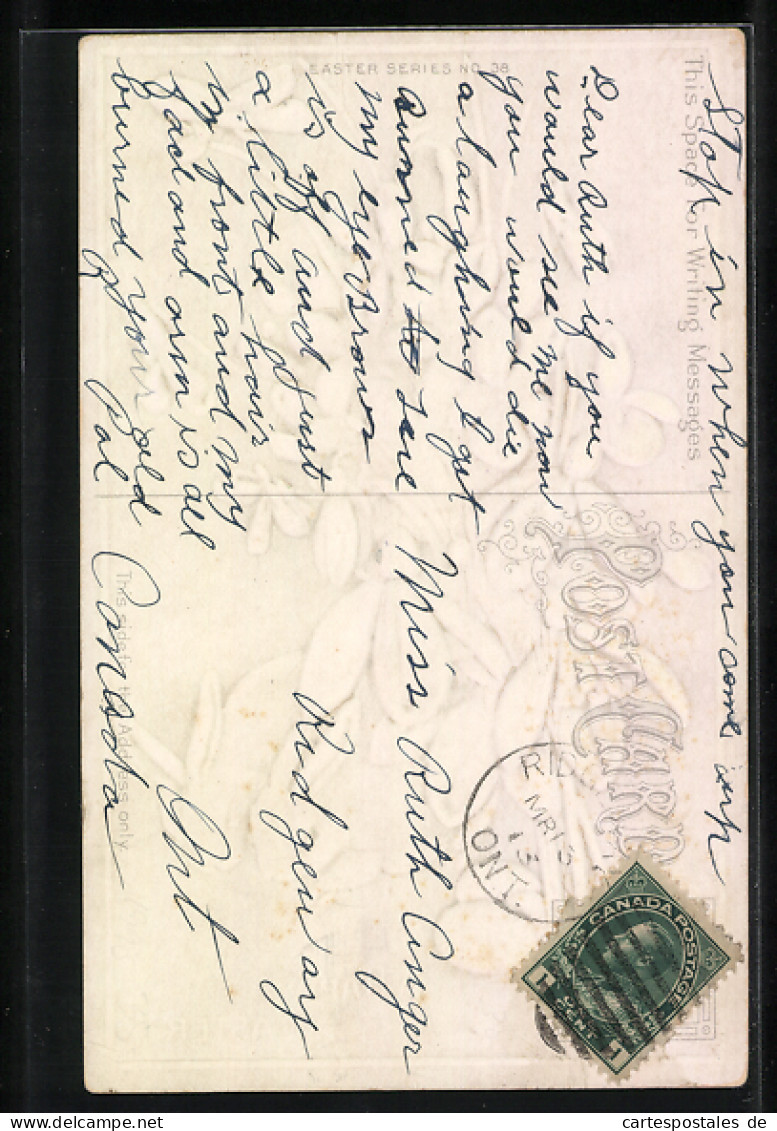 EASTER SERIES NO. 38
This Space for Writing Messages
Stop in when you come up
Dear Ruth if you
would see me now
you would die
a laughing I got
Burned to see
my eye Brows
is off and Just
a little hair
in front and my
face and arm is all
burned your old
Pal
POST CARD
This side for the Address only
Miss Ruth Unger
Ridgeway
Ont
Canada
MR 13
13
ONT.
CANADA POSTAGE
1 CENT 1
cartespostales de